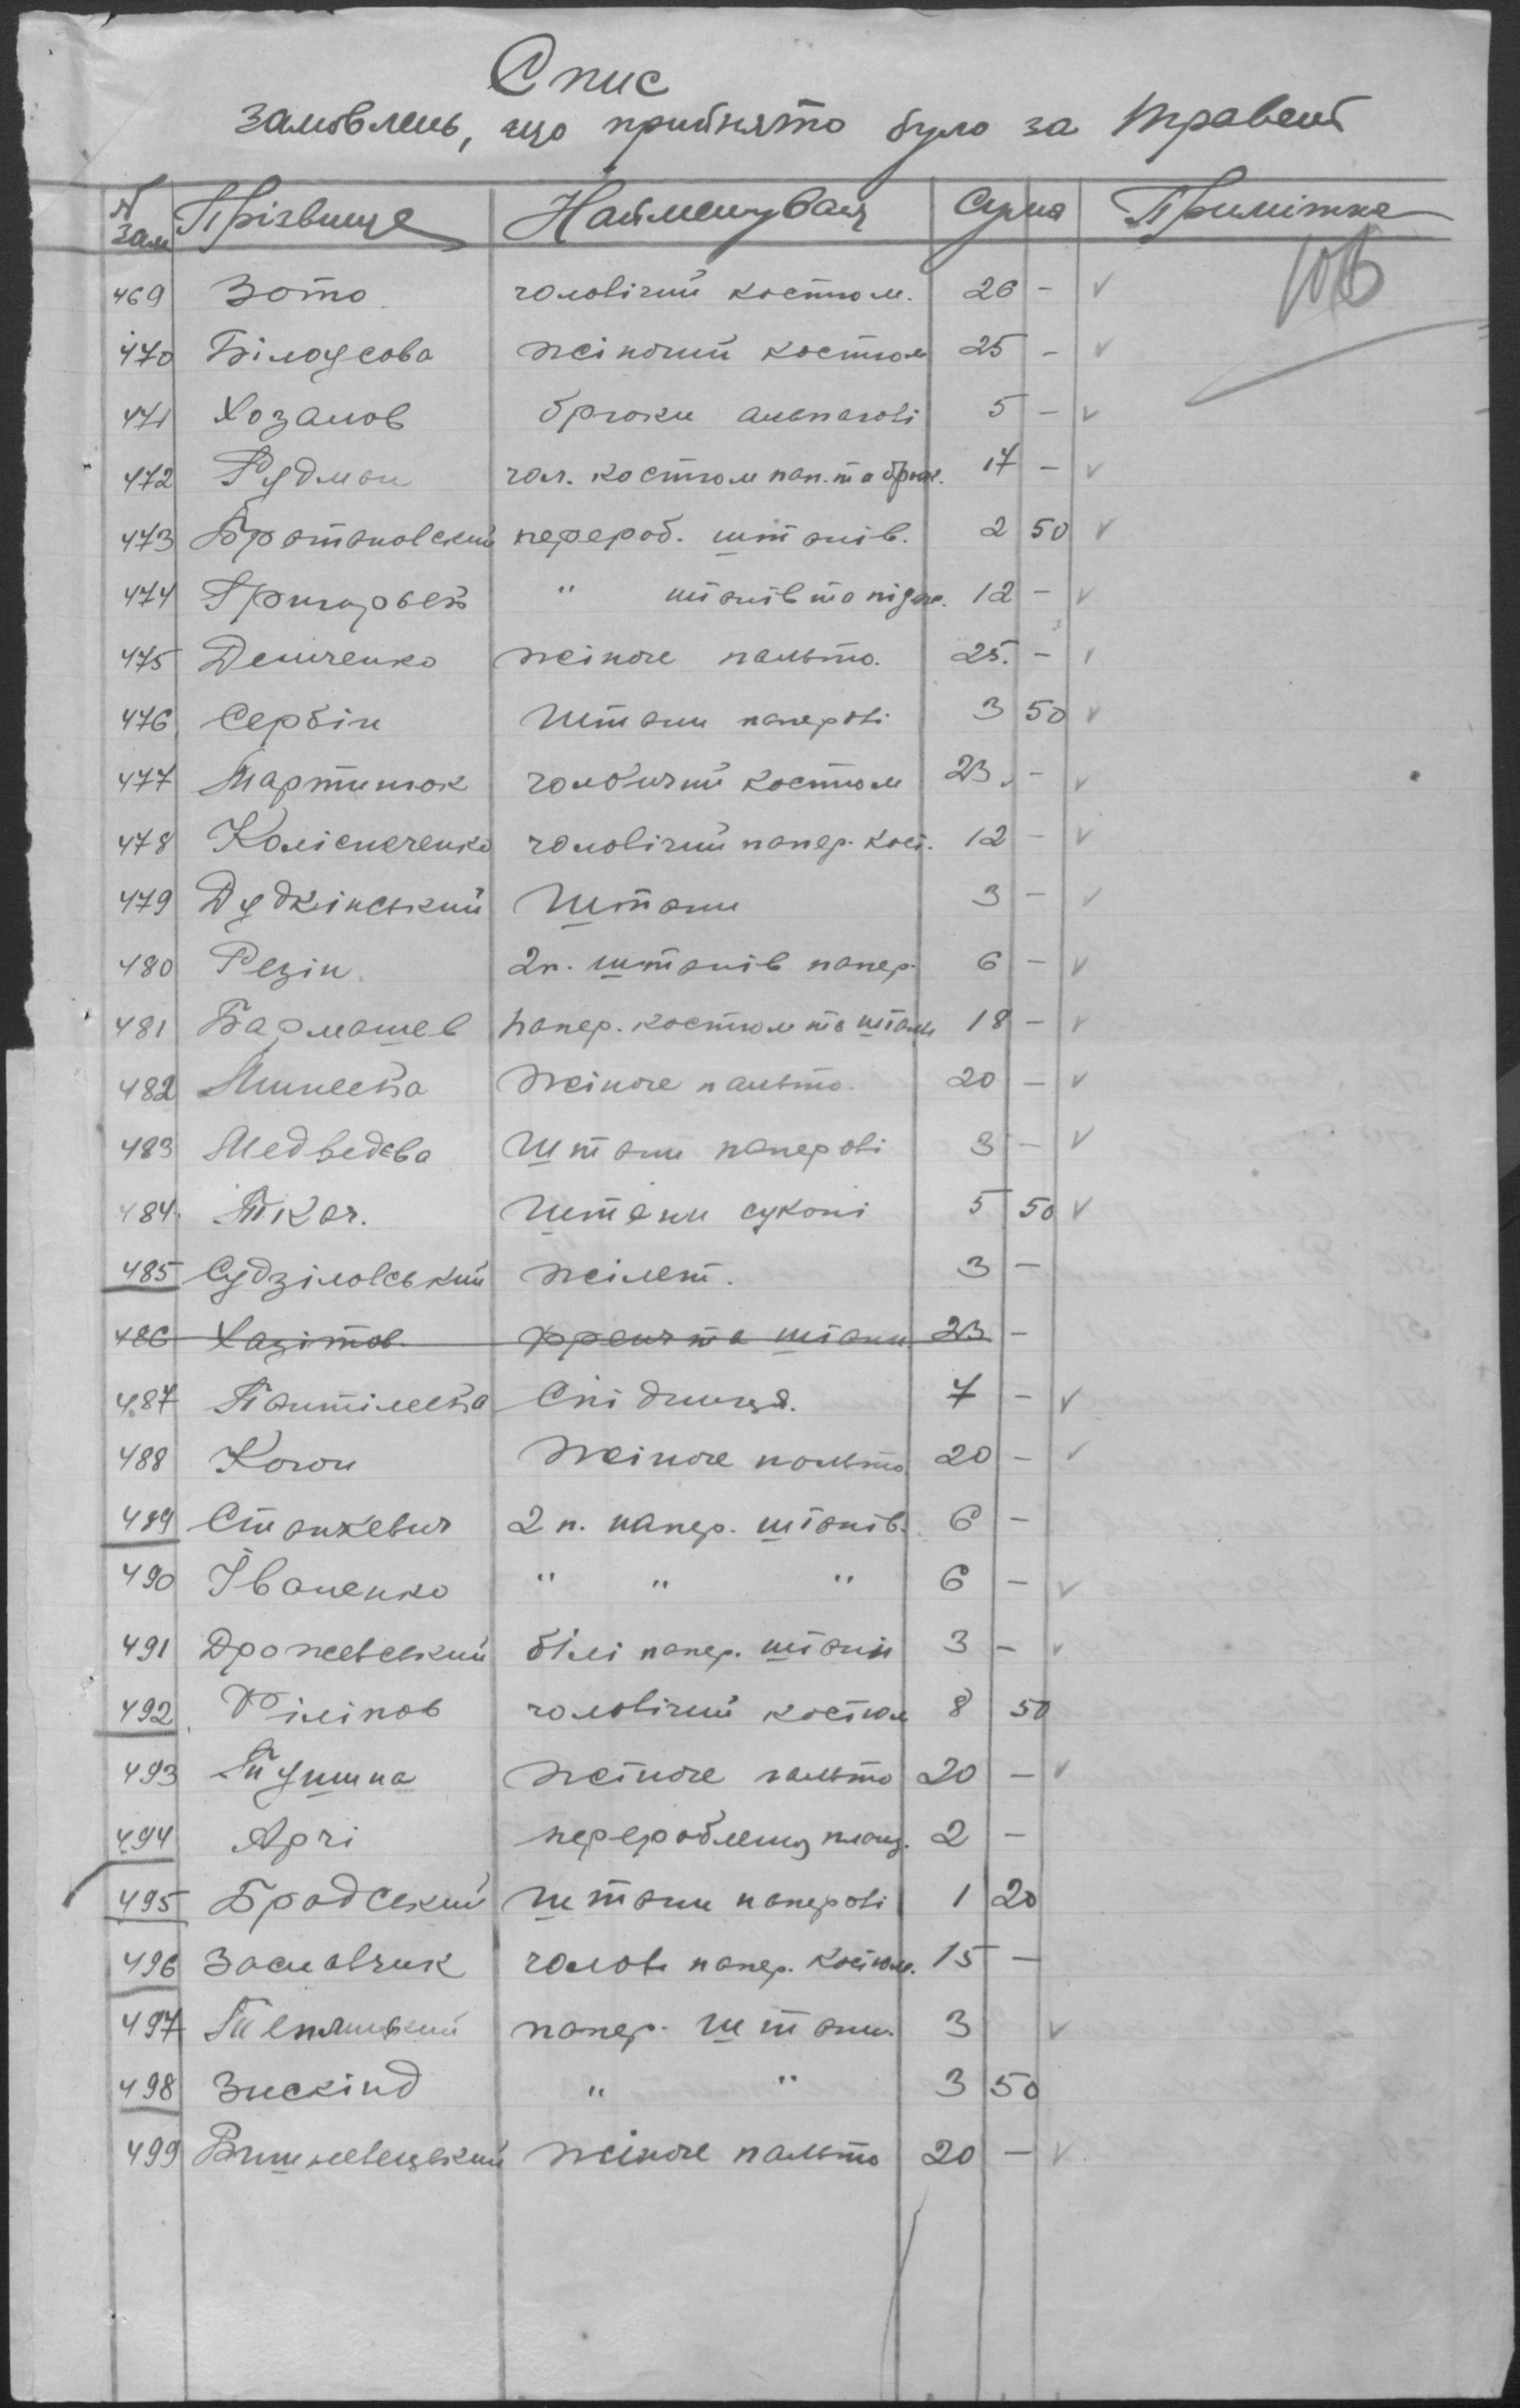 Спис
замовлень, що прийнято було за травень
№ зам Прізвище Найменування Сума Примітка
106
469 Зото чоловічий костюм. 26 - v
470 Білоусова жіночий костюм 25 - v
471 Хозанов брюки альпагові 5 - v
472 Рудман чол. костюм пап. та брюк. 17 - v
473 Братановский перероб. штанів. 2 50 v
474 Григорьев " штанів та підж. 12 - v
475 Демченко жіноче пальто. 25. - v
476 Сербін Штани паперові 3 50 v
477 Мартинюк чоловичий костюм 23. - v
478 Колісниченко чоловічий папер. кост. 12 - v
479 Дудкінський Штани 3 - v
480 Резін 2 п. штанів папер. 6 - v
481 Бармашев папер. костюм та штани 18 - v
482 Минеева жіноче пальто. 20 - v
483 Медведєва Штани паперові 3 - v
484. Ткач. Штани суконі 5 50 v
485 Судзіловський жілет. 3 -
486 Хазітов френч та штани 23 -
487 Пантілеева Спідниця. 7 - v
488 Коган жіноче пальто 20 - v
489 Станкевич 2 п. папер. штанів. 6 -
490 Іваненко " " " 6 - v
491 Дрожевський білі папер. штани 3 - v
492 Філіпов чоловічий костюм 8 50
493 Тушина жіноче пальто 20 - v
494 Арчі перероблення плащ. 2 -
495 Бродський Штани паперові 1 20
496 Заславчик чолов. папер. костюм. 15 -
497 папер. штани. 3 v
498 Зискінд " " 3 50
499 Вишневецький жіноче пальто 20 - v